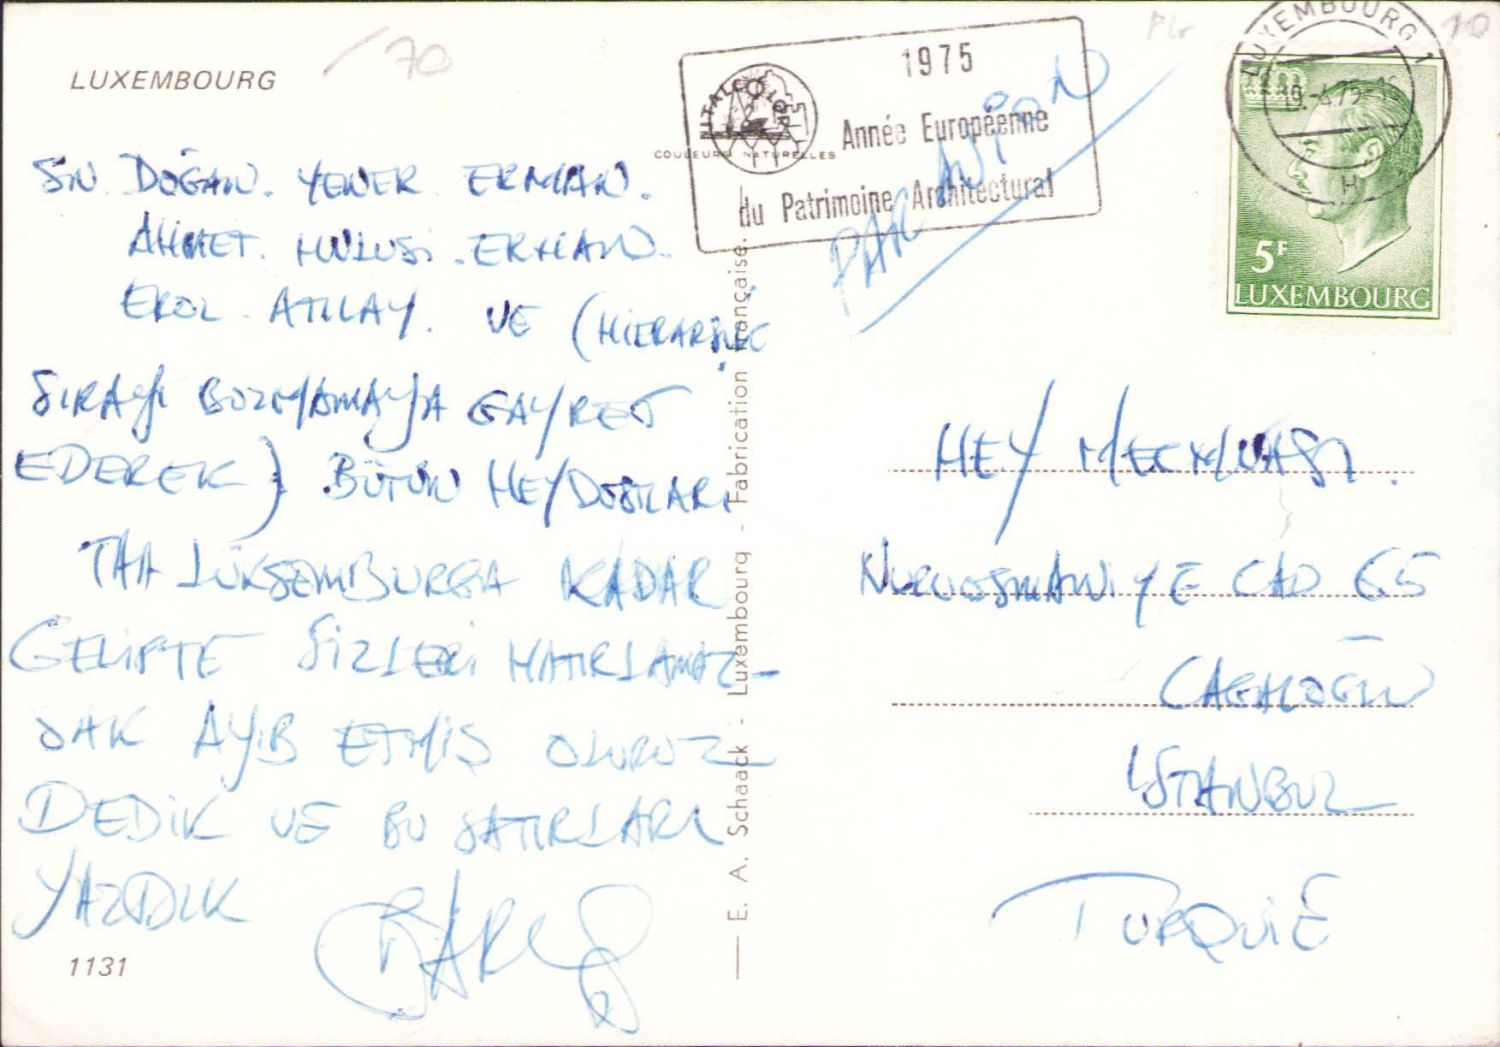 LUXEMBOURG
70
SN DOĞAN. YENER ERMAN.
AHMET. HULUSİ. ERMAN.
EROL. ATILAY. VE (HİERARŞİK
SIRAYI BOZMAMAYA GAYRET
EDEREK) BÜTÜN HEY DOSTLARI
TAA LÜKSEMBURGA KADAR
GELİPTE SİZLERİ HATIRLAMAZ-
SAK AYIB ETMİŞ OLURUZ
DEDİK VE BU SATIRLARI
YAZDIK
BARIŞ
1131
E. A. Schaack - Luxembourg - Fabrication Française.
VITALCOLOR
COULEURS NATURELLES
1975
Année Européenne
du Patrimoine Architectural
PAR AVION
10
LUXEMBOURG 1
H
5F
LUXEMBOURG
HEY MECMUASI.
NURUOSMANİYE CAD 65
CAĞALOĞLU
İSTANBUL
TURQUİE